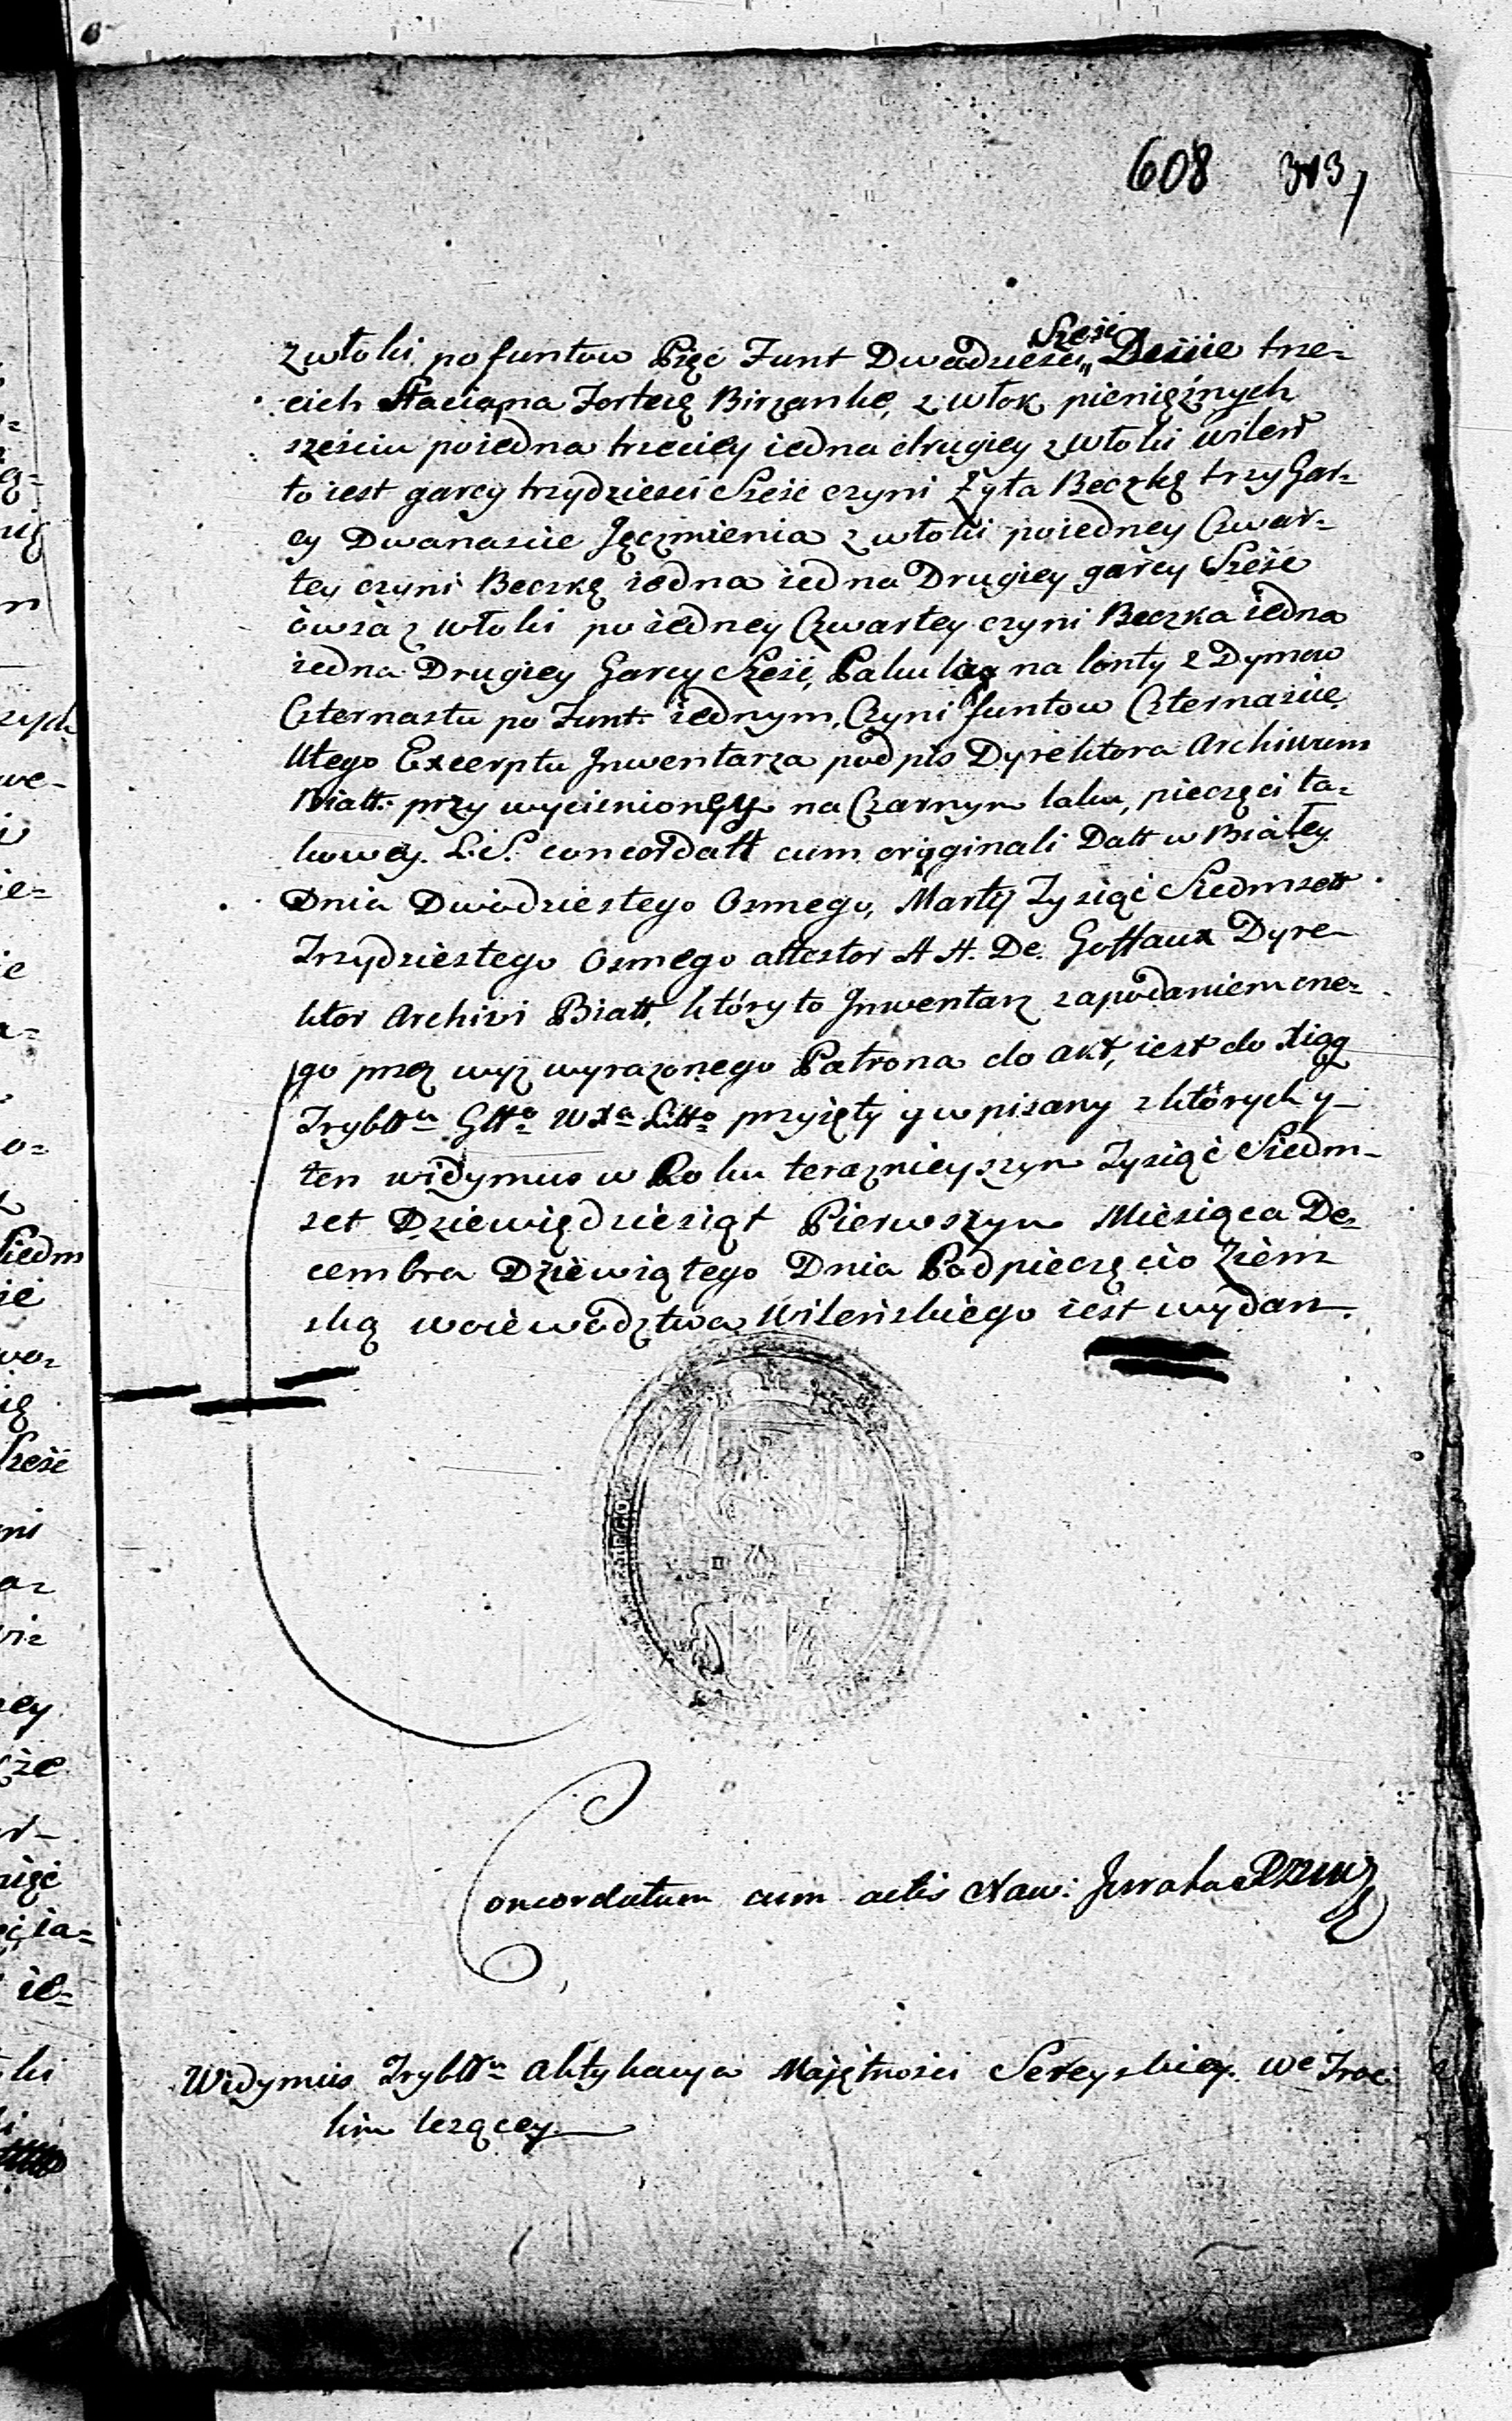 608 313
Sześć
z włoki po funtow Pięć Funt Dwadzieścia Dwie trze=
cich Stacia na Fortecę Birżanke, z włok pieniężnych
sześciu po iedna trzeciey iedna drugiey z włoki wileń
to iest garcy trzydzieści Sześć czyni Żyta Beczkę trzy Gar=
cy Dwanaście Jęczmienia z włoki po iedney Czwar=
tey czyni Beczkę iedna iedna Drugiey garcy Sześć
ówsa z włoki po iedney Czwartey czyni Beczka iedna
iedna Drugiey Garcy Sześć, Pakułą na lonty z Dymow
Czternastu po Funt iednym, Czyni funtow Czternaście.
U tego Excerptu Jnwentarza podpis Dyrektora Archiwum
Biatt. przy wycisnioney na Czarnym laku, pieczęci ta=
kowey. L.S. concordatt cum oryginali Datt w Białey
Dnia Dwódziestego Osmego, Martij Tysiąć Siedmsett
Trzydziestego Osmego attestor A H. De. Goffaux Dyre=
ktor Archivi Biatt, który to Jnwentarz za podaniem one=
go przez wyż wyrażonego Patrona do akt, iest do Xiąg
Trybttu Gttо WXa Litto przyięty y wpisany z których y=
ten widymus w Roku teraznieyszym Tysiąć Siedm=
set Dziewięćdziesiąt Pierwszym Miesiąca De=
cembra Dziewiątego Dnia Pod pieczęcio Ziem=
ską woiewodztwa Wileńskiego iest wydan.
Concordatum cum actis
Widymus Trybttu aktykacya Maiętności Sereyskiey we Troc=
kim leżącey